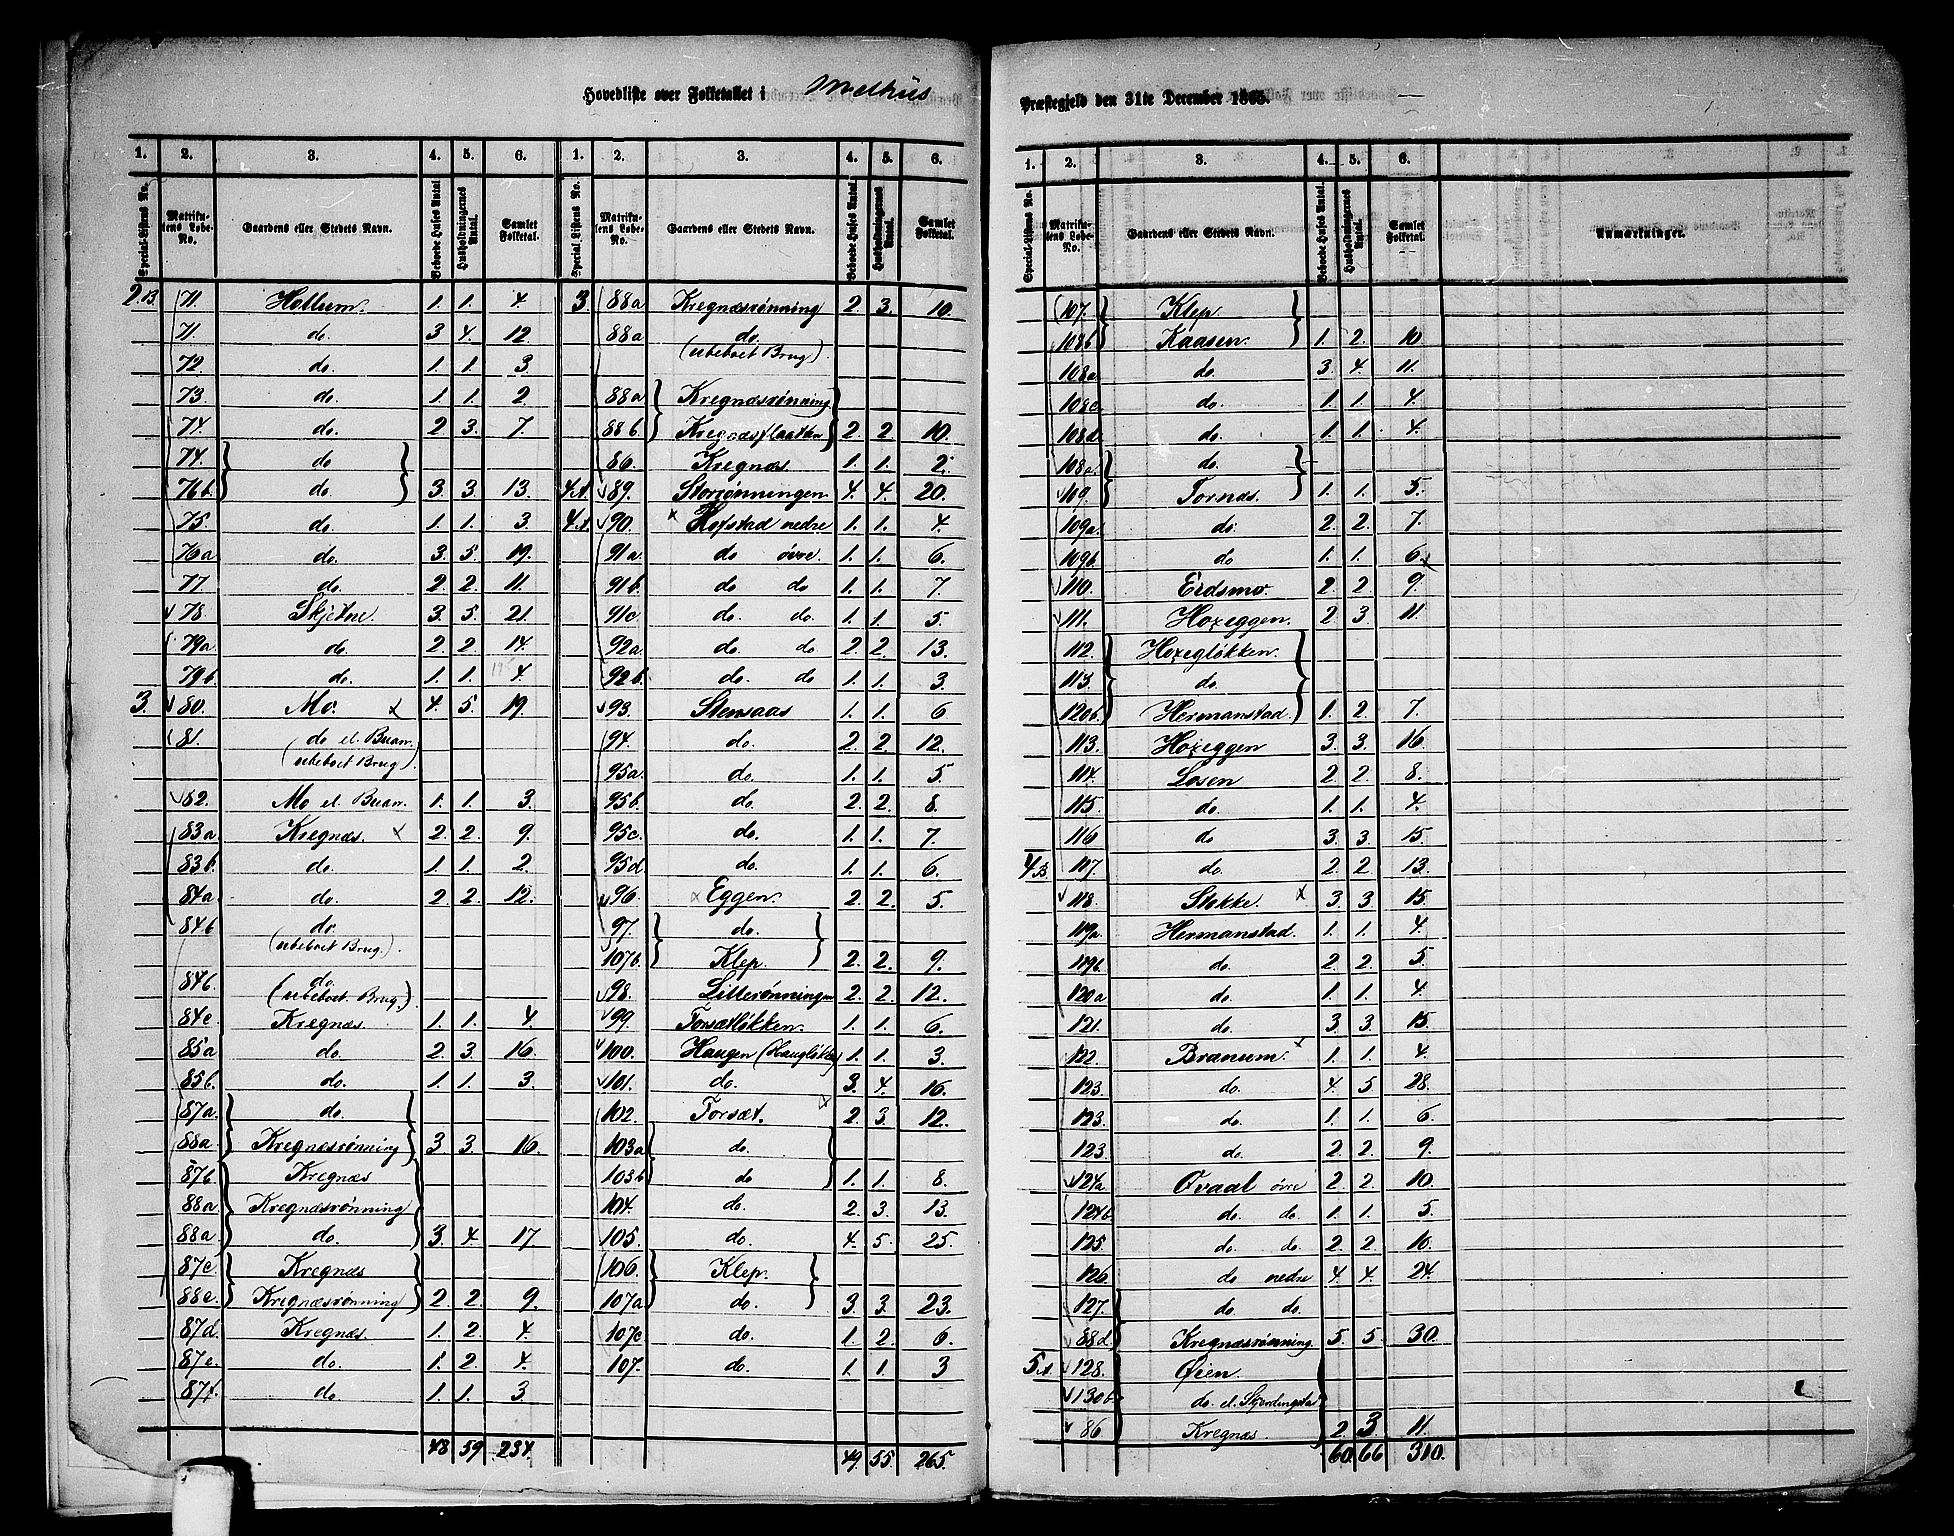 Hovedliste over Folketallet i Melhus
Præstegjeld den 31te December 1865.
1. 2. 3. 4. 5. 6. 1. 2. 3. 4. 5. 6.
Special-Listens No. Matrikulens Løbe-No. Gaardens eller Stedets Navn. Beboede Huses Antal Husholdningernes Antal. Samlet Folketal. Special Listens No. Matrikulens Løbe-No. Gaardens eller Stedets Navn. Beboede Huses Antal. Husholdningernes Antal. Samlet Folketal.
2.B 71. Hollum. 1. 1. 4.
71. do. 3 4. 12.
72. do. 1. 1. 3.
73. do. 1. 1. 2.
74. do. 2 3. 7.
74. do
76b. do. 3. 3. 13.
75. do. 1. 1. 3.
76a do. 3. 5. 19.
77. do. 2. 2. 11.
78. Skjetne. 3. 5. 21.
79a do. 2. 2 14.
79b. do. 1. 1. 4.
3. 80. Mo. x 4. 5. 19.
81. do el. Buan.
(ubeboet Brug).
82. Mo el. Buan. 1. 1. 3.
83a Kregnæs. x 2. 2. 9.
83b. do. 1. 1. 2.
84a do. 2 2. 12.
84b do
(ubeboet Brug).
84b. do.
(ubeboet Brug.)
84c. Kregnæs. 1. 1. 4.
85a do. 2. 3. 16.
85b. do. 1. 1. 3.
87a. do.
88a. Kregnæsrønning 3 3. 16.
87b. Kregnæs
88a. Kregnæsrønning
88a. do. 3. 4. 17.
87c. Kregnæs
88c. Kregnæsrønning 2. 2. 9.
87d. Kregnæs. 1. 2. 4.
87e. do. 1. 2. 4.
87f. do. 1. 1. 3.
48 59 234.
3. 88a Kregnæsrønning 2. 3. 10.
88a do.
(ubeboet Brug).
88a. Kregnæsrønning
88b. Kregnæsflaaten 2. 2. 10.
86. Kregnæs. 1. 1. 2.
4A. 89. Storrønningen 4. 4. 20.
4A 90. x Hofstad nedre 1. 1. 4.
91a do øvre. 1. 1. 6.
91b do do 1. 1. 7.
91c do. do. 1. 1. 5.
92a. do. do 2. 2. 13.
92b. do. do 1. 1. 3.
93. Stensaas 1. 1. 6
94. do. 2. 2. 12.
95a. do. 1. 1. 5.
95b. do. 2. 2. 8.
95c. do. 1. 1. 7.
95d. do. 1. 1. 6.
96 x Eggen. 2. 2. 5.
97. do.
107b. Klep. 2. 2. 9.
98. Lillerønningen 2. 2. 12.
99. Forsætløkken. 1. 1. 6.
100. Haugen (Haugløkken) 1. 1. 3.
101. do. 3. 4. 16.
102. Forsæt. x 2. 3. 12.
103a do.
103b do 1. 1. 8.
104. do. 2. 3. 13.
105. do. 4. 5. 25.
106. Klep.
107a do. 3. 3. 23.
107c do. 1. 2. 6.
107. do. 1. 1. 3
49. 55. 265.
1. 2. 3. 4. 5. 6.
Special-Listens No. Matrikulens Løbe-No. Gaardens eller Stedets Navn. Beboede Huses Antal. Husholdningernes Antal. Samlet Folketal. Anmærkninger.
107. Klep.
108b Kaasen. 1. 2. 10
108a. do. 3. 4. 11.
108c. do 1. 1. 4.
108d. do. 1. 1. 4.
108a. do.
109. Fornæs. 1. 1. 5.
109a. do. 2. 2. 7.
109b. do 1. 1. 6. x
110. Eidsmo 2. 2. 9.
111. Hoxeggen. 2 3. 11.
112. Hoxegløkken.
113. do.
120b. Hermanstad. 1. 2. 7.
113. Hoxeggen 3. 3. 16
114. Losen 2. 2. 8.
115. do. 1. 1. 4.
116 do 3. 3. 15.
4B. 117. do. 2 2. 13.
118. Stokke. x 3. 3. 15.
119a Hermanstad. 1. 1. 4.
119b. do. 2. 2. 5.
120a do. 1. 1. 4.
121. do. 3. 3. 15.
122. Branum. x 1. 1. 4.
123. do. 4. 5 28.
123. do. 1. 1. 6.
123. do. 2. 2. 9.
124a Øvaal øvre 2. 2. 10.
124b do. do. 1. 1. 5.
125. do. do. 2. 2. 10.
126. do nedre 4. 4. 24.
127. do do.
88d. Kregnæsrønning 5. 5. 30.
5A. 128. Øien.
130b do. el. Skjerdingstad
86 Kregnæs. 2 3 11.
60. 66 310.